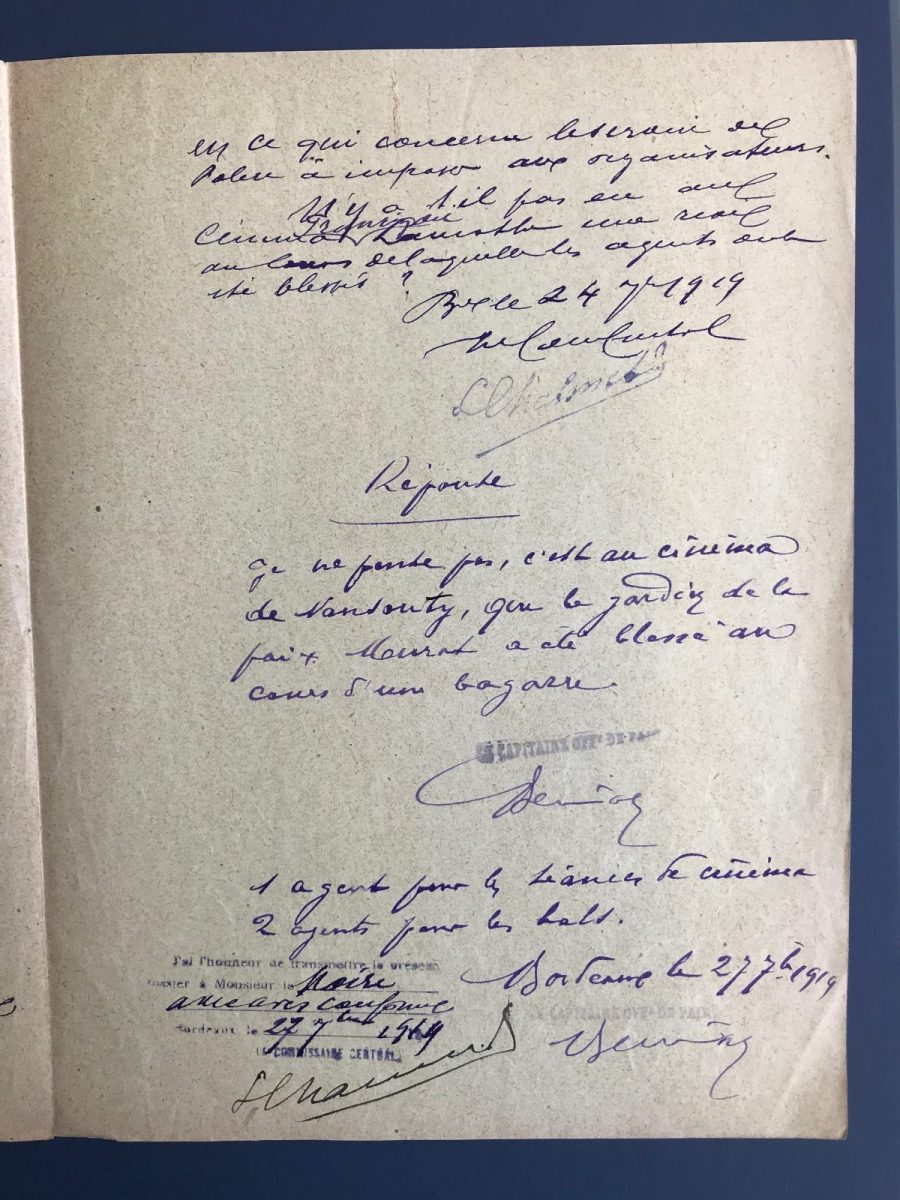 en ce qui concerne le service de
Police à imposer aux organisateurs.
N'y a t-il pas eu au
Cinéma Lamothe une rixe
au cours de laquelle des agents ont
été blessés ?
Bx le 24 7bre 1919
Le Com Central
Réponse
Je ne pense pas, c'est au cinéma
de Nansouty, que le gardien de la
paix Mourat a été blessé au
cours d'une bagarre.
LE CAPITAINE OFFR DE PAIX
1 agent pour les séances de cinéma
2 agents pour les bals.
Bordeaux le 27 7bre 1919
LE CAPITAINE OFFR DE PAIX
J'ai l'honneur de transmettre le présent
dossier à Monsieur le Maire
avec avis conforme
Bordeaux le 27 7bre 1919
LE COMMISSAIRE CENTRAL